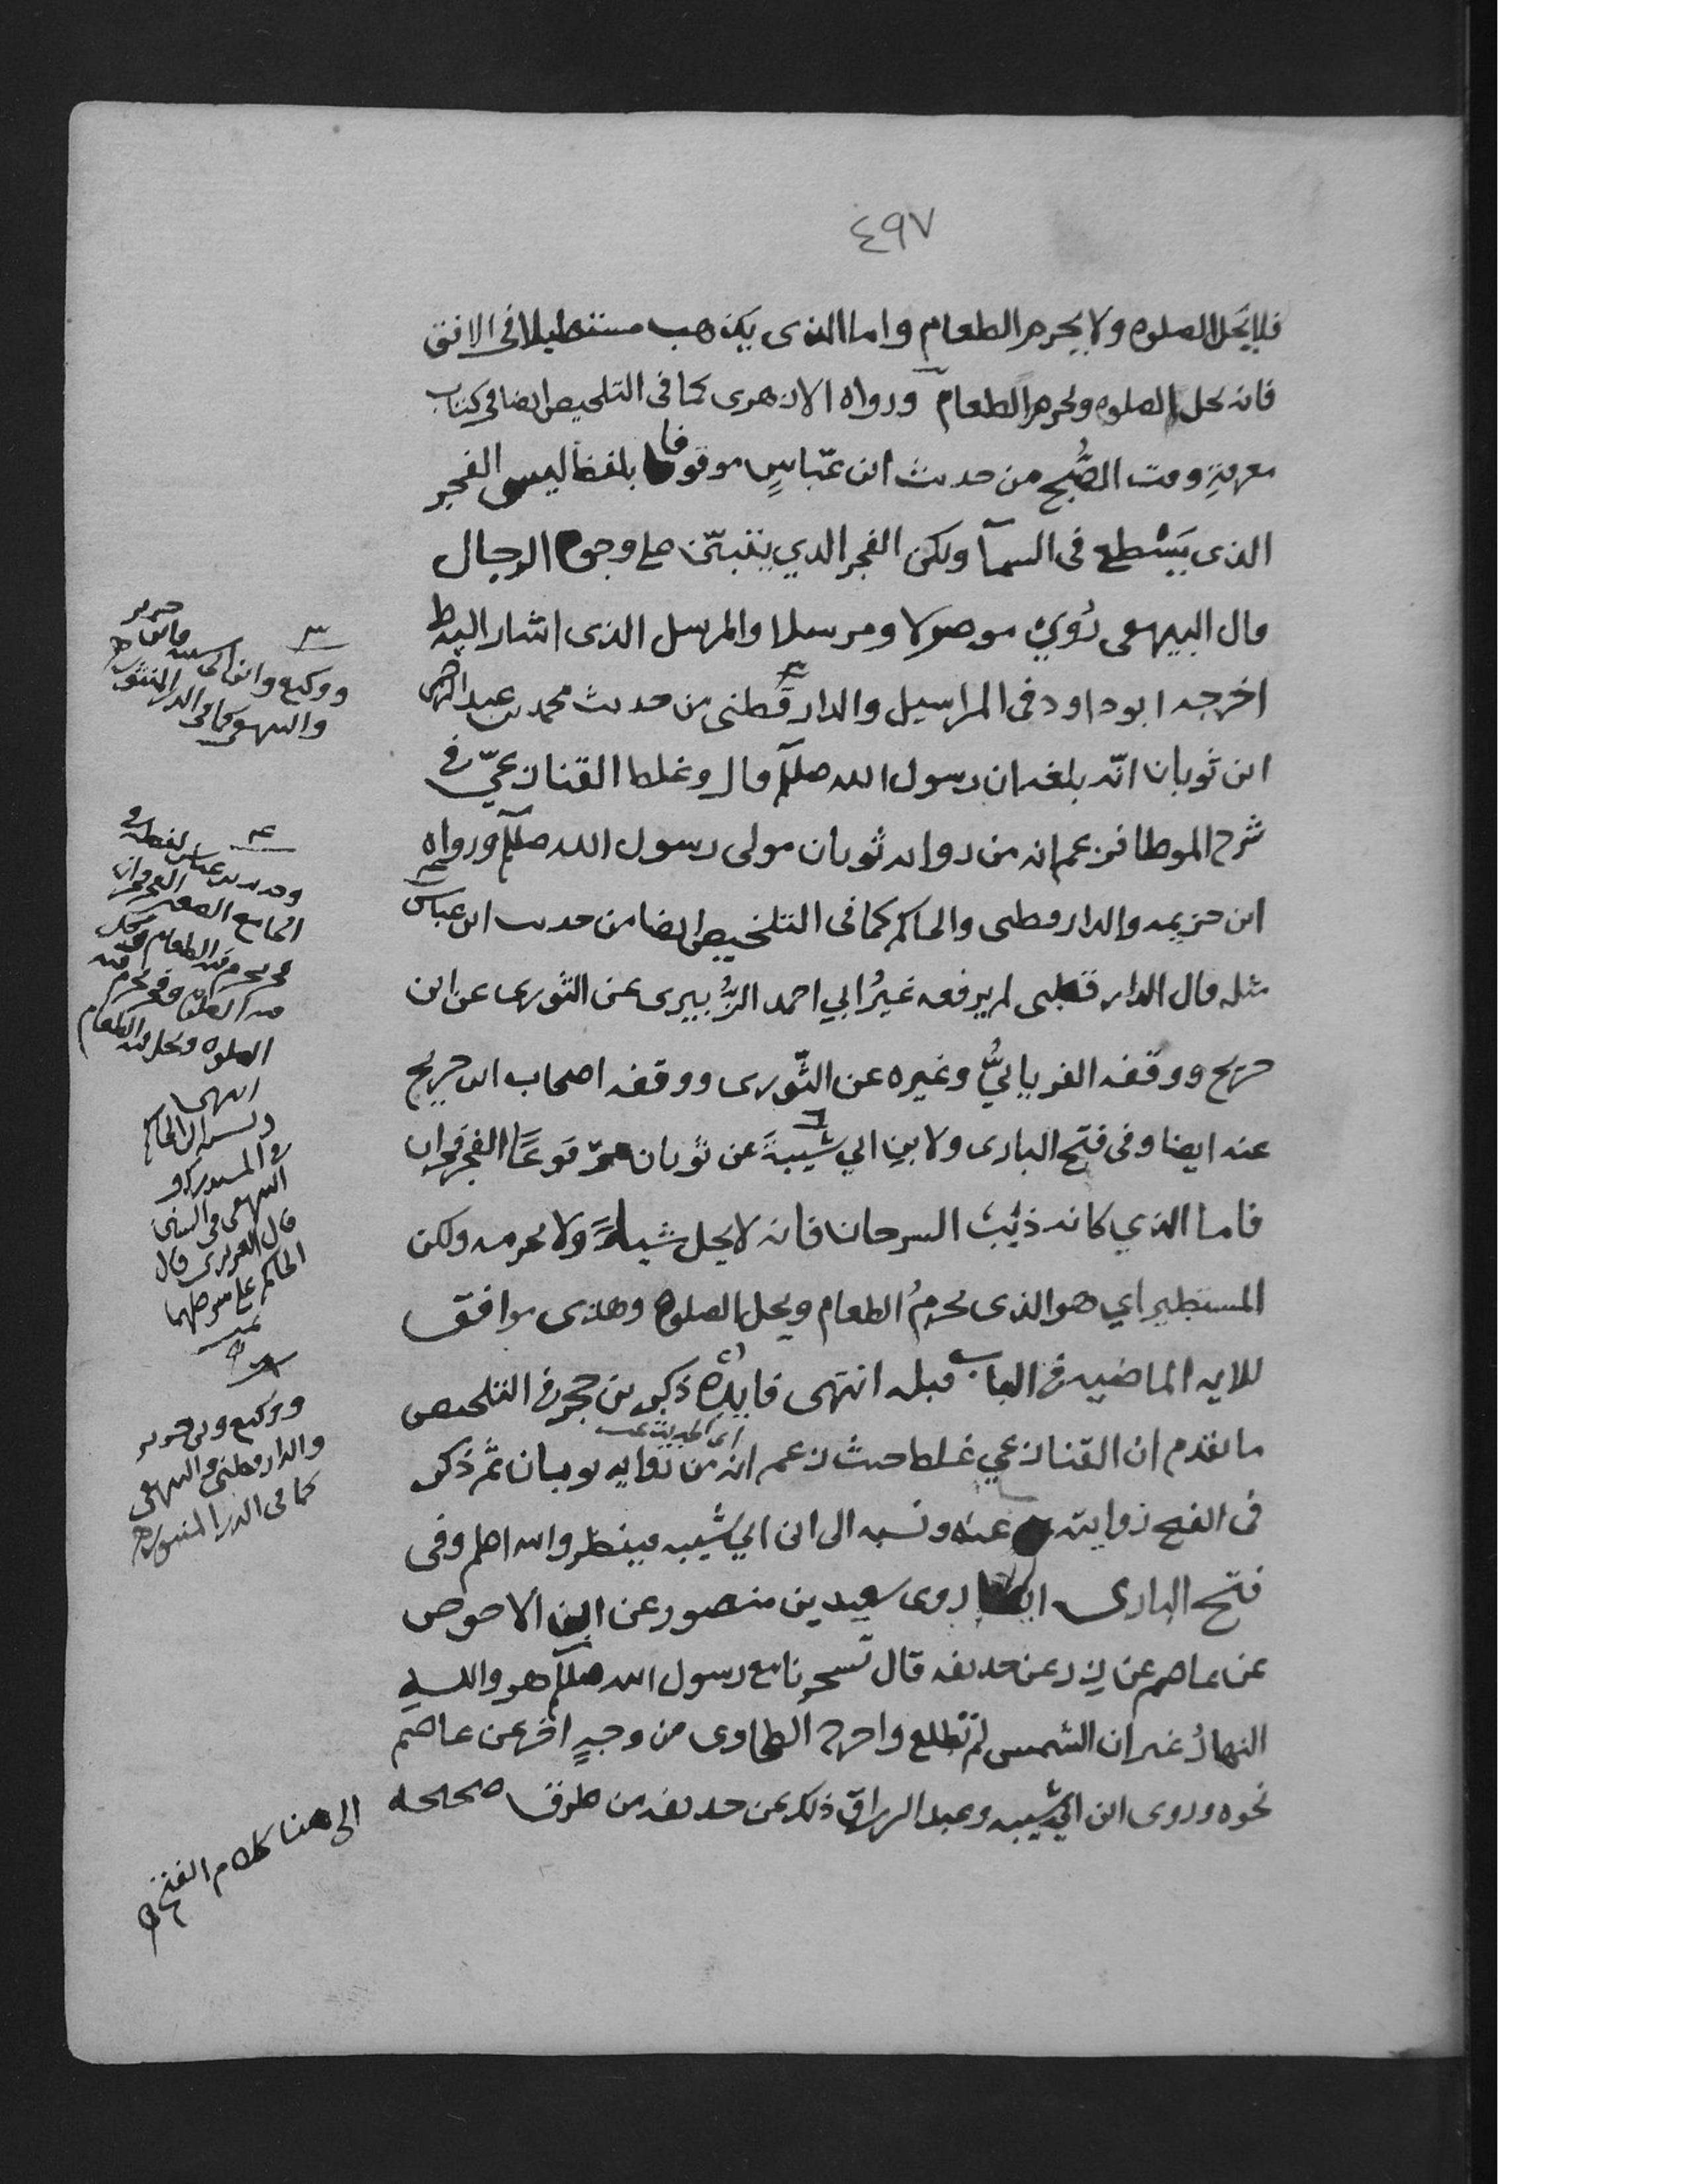 ٤٩٧
فلا يحل الصلوه ولا يحرم الطعام واما الذى يذهب مستطيلا فى الافق
فانه يحل الصلوه ويحرم الطعام ورواه الازهرى كما فى التلخيص ايضا فى كتاب
معرفة وقت الصُّبح من حديث ابن عبّاسٍ موقوفا بلفظ ليس الفجر
الذى يَسْطع فى السمآ ولكن الفجر الذي ينتبيّن على وجوه الرجال
قال البيهقى رُوِيَ موصولا ومرسلا والمرسل الذى اشار اليه
اخرجه ابو داود فى المراسيل والدارقطنى من حديث محمد بن عبد الرحمن
ابن ثوبان انّه بلغه ان رسول الله صللم قال وغلط القنازعيّ في
شرح الموطا فزعم انه من روايه ثوبان مولى رسول الله صللم ورواه
ابن خزيمه والدارقطنى والحاكم كما فى التلخيص ايضا من حديث ابن عباس
مثله قال الدارقطنى لم يرفعه غيرُ ابي احمد الزُّبيرى عن الثورى عن ابن
جريج ووقفه الفريابيُّ وغيره عن الثّورى ووقفه اصحاب ابن جريج
عنه ايضا وفى فتح البارى ولابن ابي شيبةَ عن ثوبان مرفوعًا الفجر فجران
فاما الذي كانه ذنب السرحان فانه لا يحل شيئًا ولا يحرمه ولكن
المستطير اي هو الذى يحرمُ الطعام ويحل الصلوه وهذى موافق
للايه الماضيه فى الباب قبله انتهى فايدة ذكر بن حجر فى التلخيص
ما تقدم ان القنازعي غلط حيث زعم انه من روايه ثوبان ثم ذكر
اى الحديث
فى الفتح روايته عنه ونسبه الى ابن ابي شيبه فينظر والله اعلم وفى
فتح البارى ايضا روى سعيد بن منصور عن ابى الاحوص
عن عاصم عن زر عن حذيفه قال تسحرنا مع رسول الله صللم هو والله
النهارُ غير ان الشمس لم تطلع واخرجه الطحاوى من وجهٍ اخر عن عاصم
نحوه وروى ابن ابي شيبه وعبد الرزاق ذلك عن حذيفه من طرق صحيحه
الى هنا كلام الفتح
٣
جرير
ووكيع وابن ابى شيبه
والبيهقى كما فى الدر المنثور
٤
وحديث بن عباس لفظه فى
الجامع الصغير الفجر فجران
فجر يحرم فيه الطعام ويحل
فيه الصلوه وفجر يحرم فيه
الصلوه ويحل فيه الطعام
انتهى
ونسبه الى الحاكم
فى المستدرك و
البيهقى فى السنن
قال العزيزى قال
الحاكم على شرطهما
ووكيع وبن جرير
والدارقطنى والبيهقى
كما فى الدر المنثور